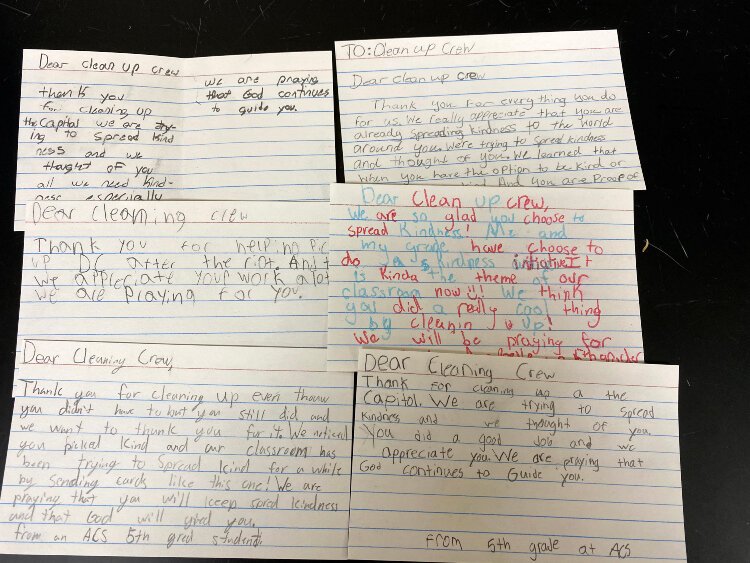 Dear clean up crew
thanks you
for cleaning up
the Capital we are try-
ing to spread kind
ness and we
thought of you
all we need kind-
ness especially
we are praying
that God continues
to guide you.
TO: Clean up Crew
Dear clean up crew
Thank you for everything you do
for us. We really appreciate that you are
already spreading kindness to the world
around you. We're trying to spread kindness
and thought of you. We learned that
when you have the option to be kind or
kind. And you are proof of
Dear Cleaning crew
Thank you for helping Pic
up DC after the riot. And t
we applerciate your work alot
we are praying for you.
Dear Clean up crew,
We are so glad you choose to
spread Kindness! Me and
my grade have choose to
do a kindness initiative It
is kinda the theme of our
classroom now!! We think
you did a really cool thing
by cleanin up!
We will be praying for
Dear Cleaning Crew,
Thank you for cleaning up even thouw
you didn't have to but you still did and
we want to thank you for it. We noticed
you picked kind and our classroom has
been trying to spread kind for a while
by sending cards like this one! We are
praying that you will keep spred kindness
and that God will you.
from an ACS 5th gred student!
Dear Cleaning Crew
Thank for cleaning up a the
Capitol. We are trying to spread
kindness and we thought of you.
You did a good job and we
appreciate you. We are praying that
God continues to Guide you.
from 5th grade at ACS